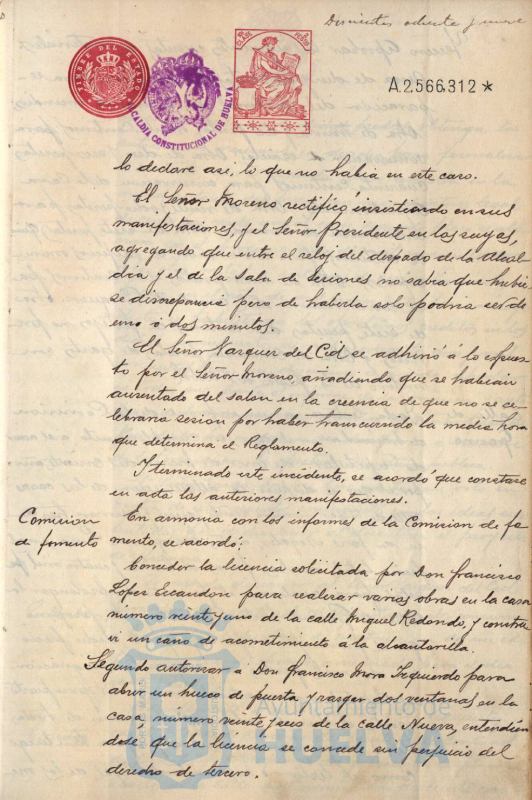 Doscientos ochenta y nueve
TIMBRE DEL ESTADO
ALCALDIA CONSTITUCIONAL DE HUELVA
A.2.566.312 *
lo declare asi, lo que no habia en este caso.
El Señor Moreno rectificó insistiendo en sus
manifestaciones, y el Señor Presidente en las suyas,
agregando que entre el reloj del despacho de la Alcal
dia y el de la Sala de sesiones no sabia que hubie
se discrepancia pero de haberla solo podria ser de
uno ó dos minutos.
El Señor Vazquez del Cid se adhirió á lo espues
to por el Señor Moreno, añadiendo que se habian
ausentado del salon en la creencia de que no se ce
lebraria sesion por haber transcurrido la media hora
que determina el Reglamento.
I terminado este incidente, se acordó que constase
en acta las anteriores manifestaciones.
Comision
de fomento
En armonia con los informes de la Comision de fo
mento, se acordó:
Conceder la licencia solicitada por Don Francisco
Lopez Escandon para realizar varias obras en la casa
número veinte y uno de la calle Miguel Redondo, y constru
ir un caño de acometimiento á la alcantarilla.
Segundo autorizar á Don Francisco Mora Izquierdo para
abrir un hueco de puerta y rasgar dos ventanas en la
casa número veinte y seis de la calle Nueva, entendien
dose que la licencia se concede sin perjuicio del
derecho de tercero.
Ayuntamiento de
HUELVA